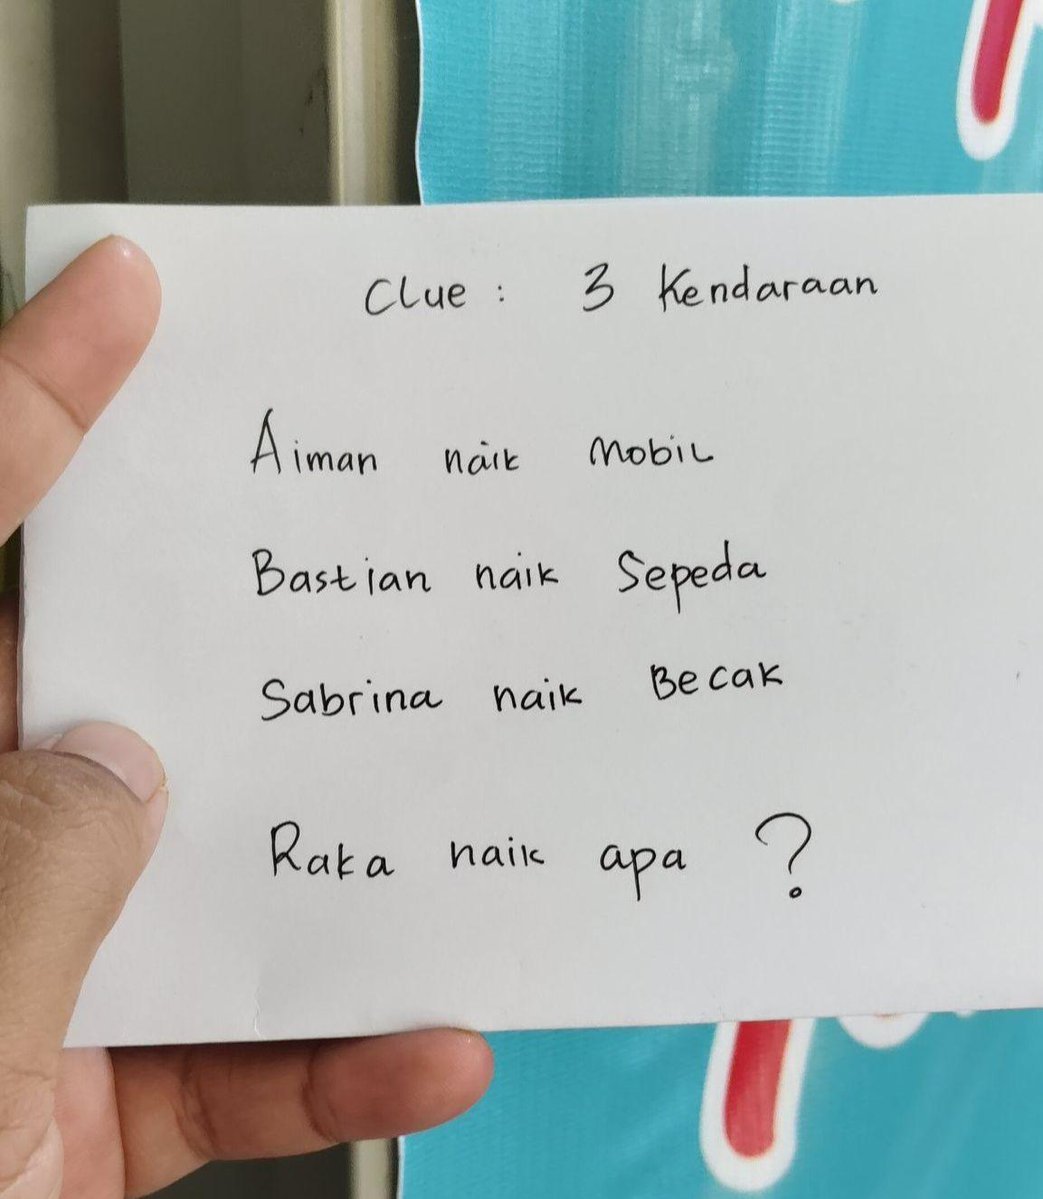 Clue : 3 Kendaraan
Aiman naik mobil
Bastian naik Sepeda
Sabrina naik Becak
Raka naik apa ?